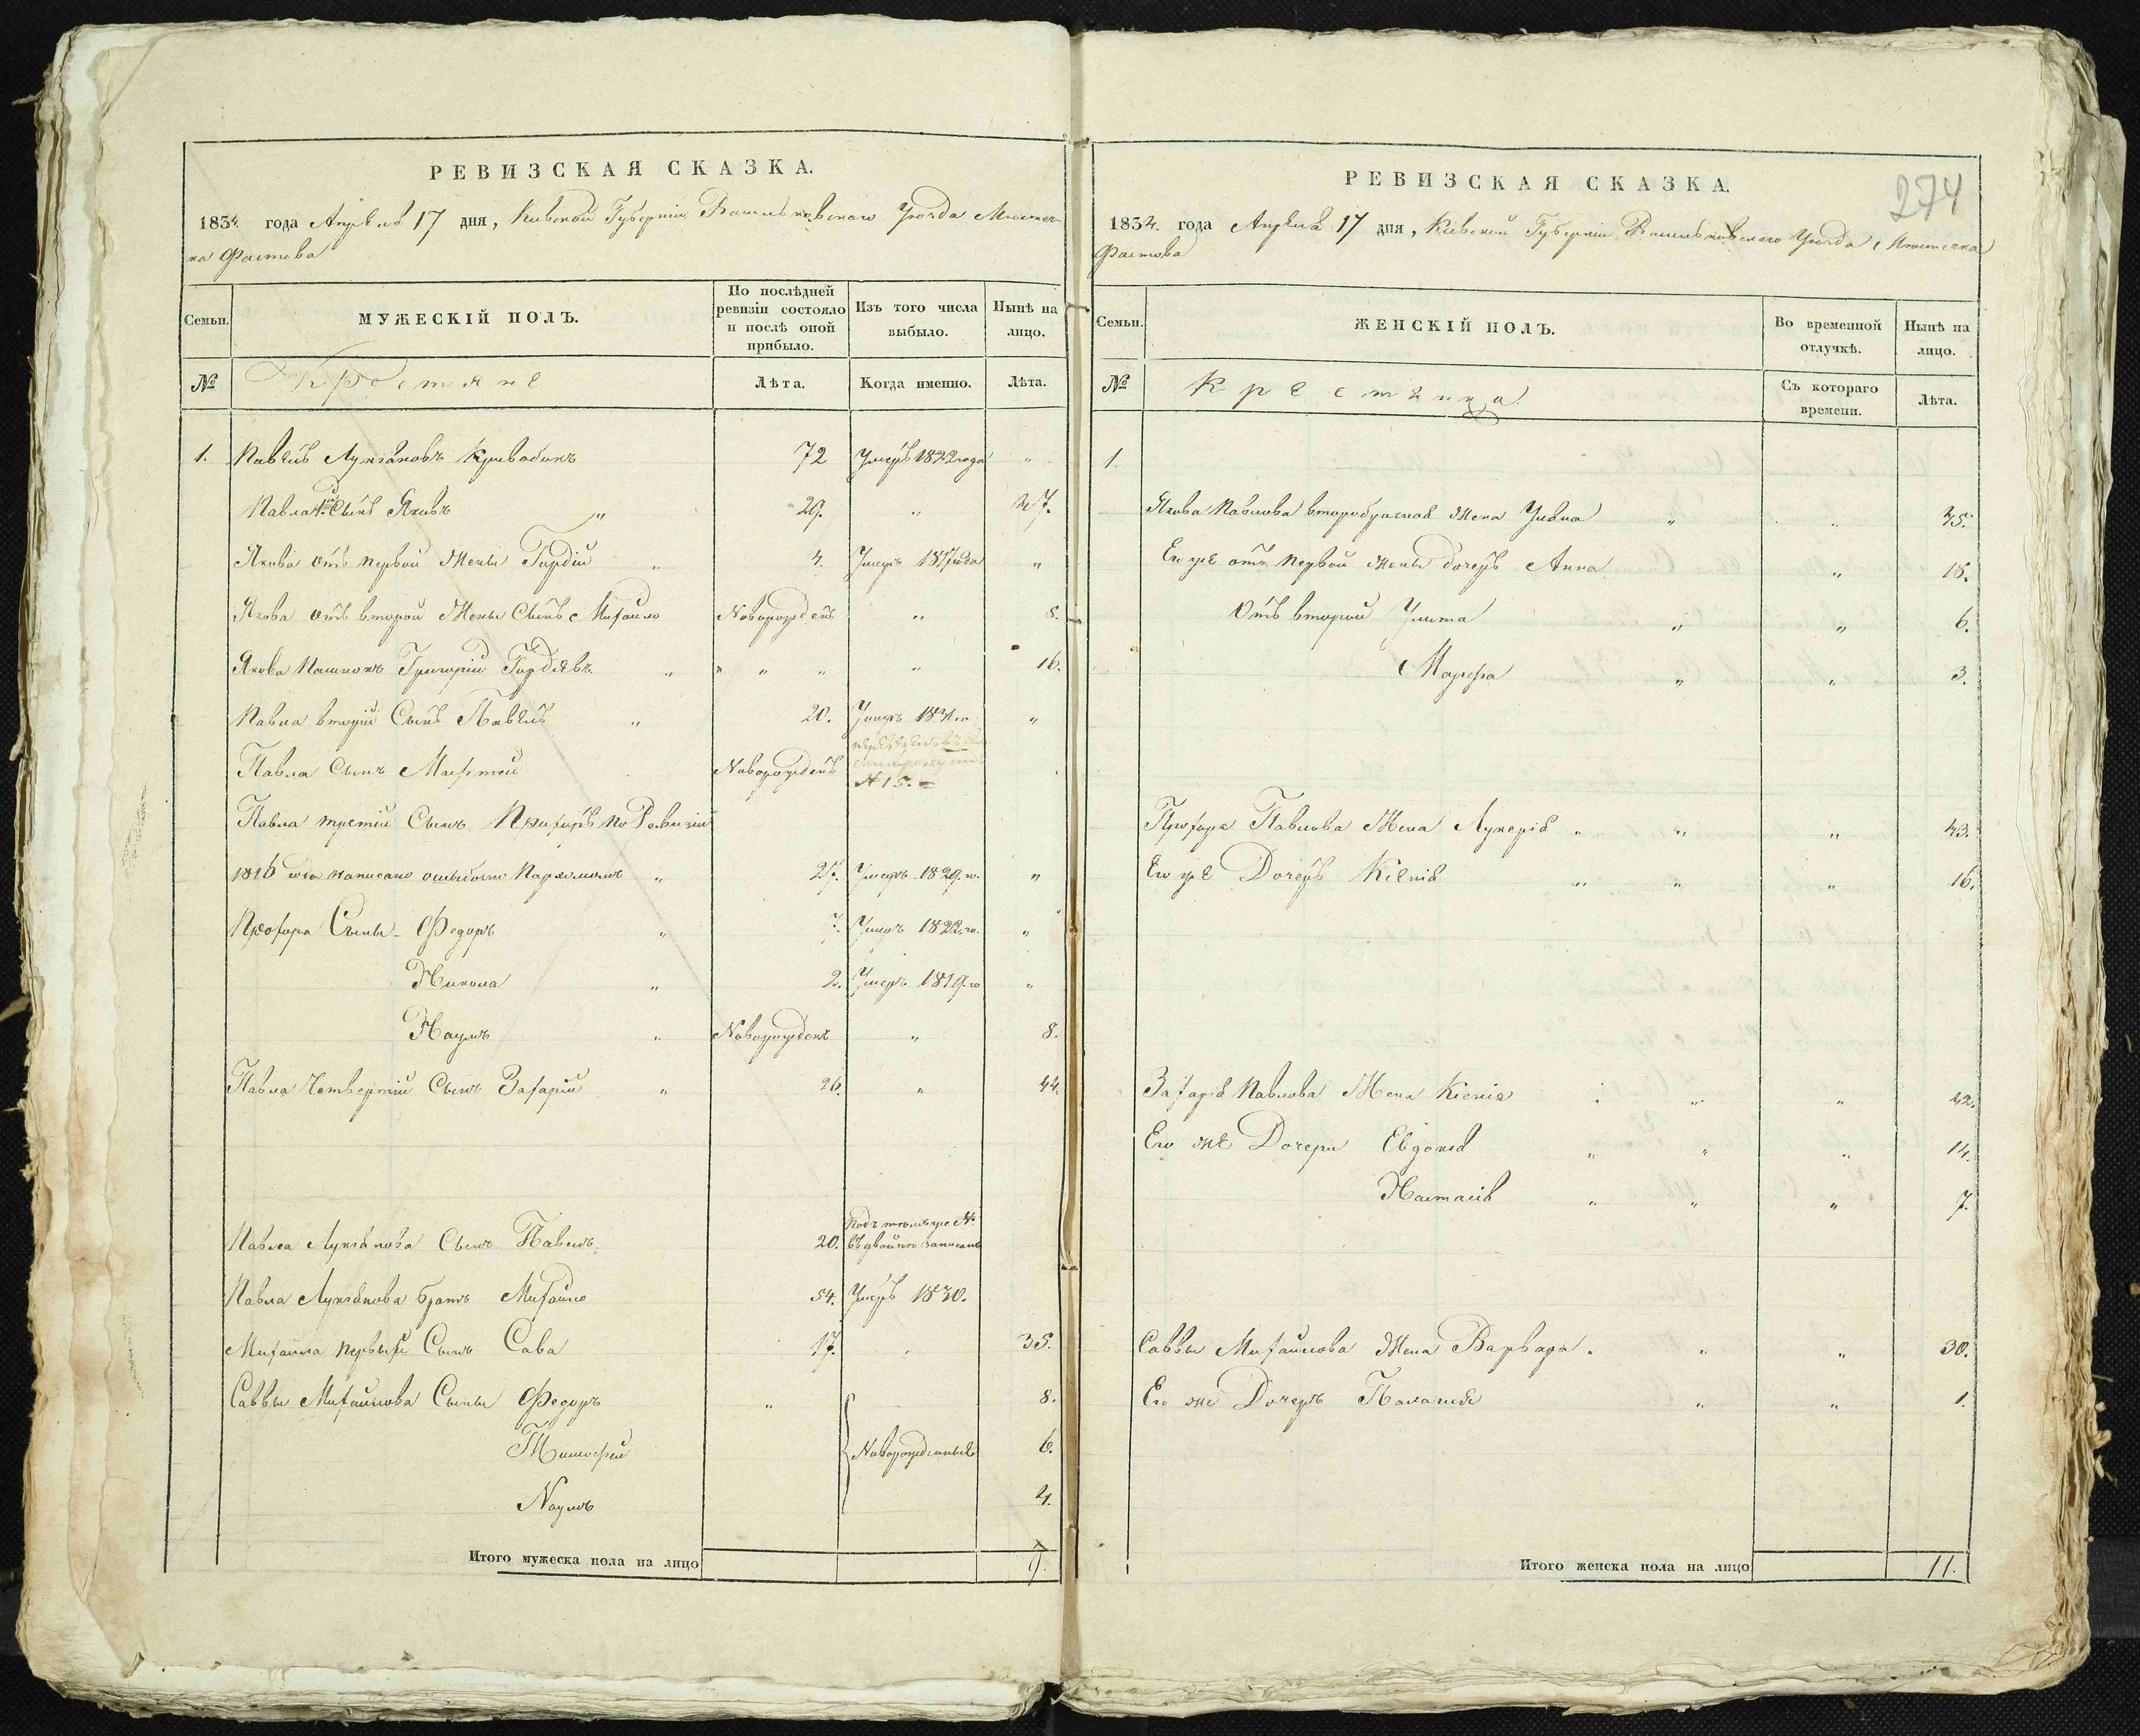 РЕВИЗСКАЯ СКАЗКА.
1834. года Апреля 17 дня, Киевской Губернии Васильковскаго Уезда Местеч-
ка Фастова
Семьи.
МУЖЕСКІЙ ПОЛЪ.
По послѣдней ревизіи состояло и послѣ оной прибыло.
Изъ того числа выбыло.
Нынѣ на лицо.
№ Крестяне Лѣта. Когда именно. Лѣта.
1. Павелъ Лукіановъ Кривобокъ 72 Умеръ 1822 года "
Павла 1й Сынъ Яковъ " 29. " 47.
Якова отъ первой Жены Гордій " 4. Умеръ 1817 года "
Якова отъ второй Жены Сынъ Михайло Новорожденъ " 8.
Якова Пасинокъ Григорій Гордѣевъ " " " " " 16.
Павла вторій Сынъ Павелъ " 20. Умеръ 1831 го "
Павла Сынъ Мафтей Новорожденъ
№ 15.
Павла третій Сынъ Прохоръ по Ревизіи
1816 года написано ошибочно " 27. Умеръ 1829. го. "
Прохора Сыны Федоръ " 7. Умеръ 1822. го. "
Никола " 2. Умеръ 1819. го "
Наумъ " Новорожденъ " 8.
Павла Четвертій Сынъ Захарій " 26. " 44.
Павла Лукіанова Сынъ Павелъ 20. Подъ темъ же № въдвойне записанъ
Павла Лукіанова братъ Михайло 54. Умеръ 1830.
Михаила первый Сынъ Сава 17. " 35.
Саввы Михайлова Сыны Федоръ " 8.
Тимофей Новорожденные 6.
Наумъ 4.
Итого мужеска пола на лицо 9.
274
РЕВИЗСКАЯ СКАЗКА.
1834. года Апреля 17 дня, Киевской Губерніи Васильковскаго Уезда Местечка
Фастова
Семьи.
ЖЕНСКІЙ ПОЛЪ.
Во временной отлучкѣ.
Нынѣ на лицо.
№ Крестянка Съ котораго времени. Лѣта.
1.
Якова Павлова второбрачная Жена Улвна " " 45.
Его же отъ первой жены дочерь Анна " 18.
Отъ второй Улита " " 6.
Марфа " " 3.
Прохора Павлова Жена Лукерія " " " 43.
Его же Дочерь Ксенія " " " 16.
Захарія Павлова Жена Ксенія " " " 42.
Его же Дочери Евдокія " " " 14.
Настасія " " " 7.
Саввы Михайлова Жена Варвара " " 30.
Его же Дочерь Палагія " " 1.
Итого женска пола на лицо 11.